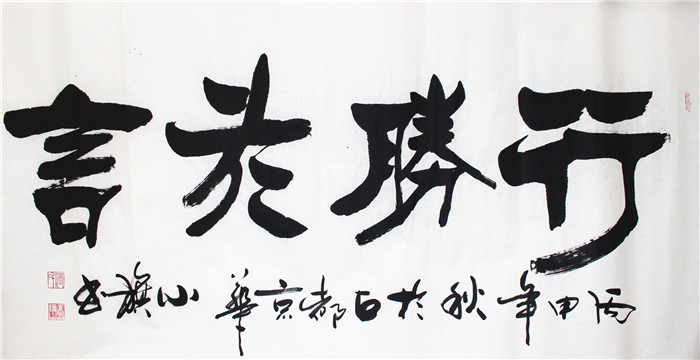 行勝於言
丙申年秋於古都京華小書